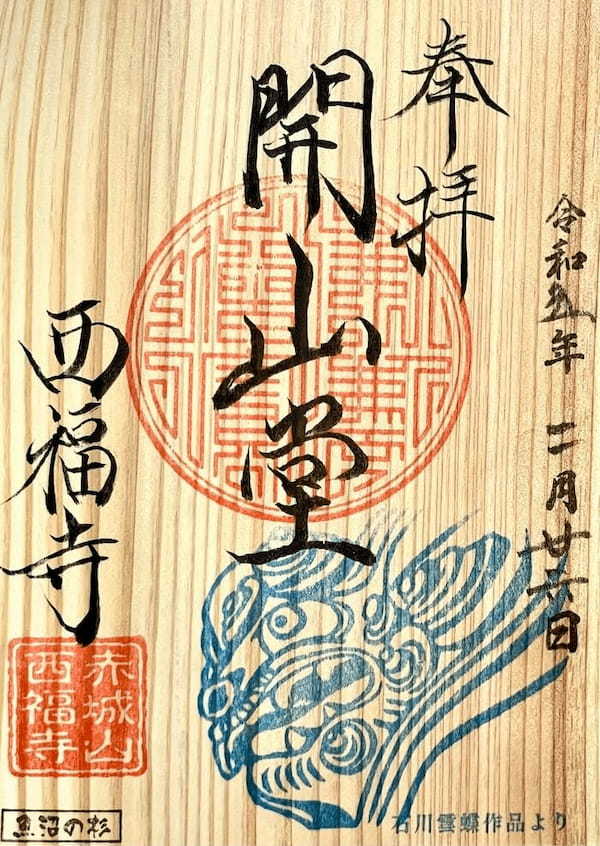 奉拝
令和五年 二月廿六日
開山堂
西福寺
赤城山
西福寺
魚沼の杉
石川雲蝶作品より